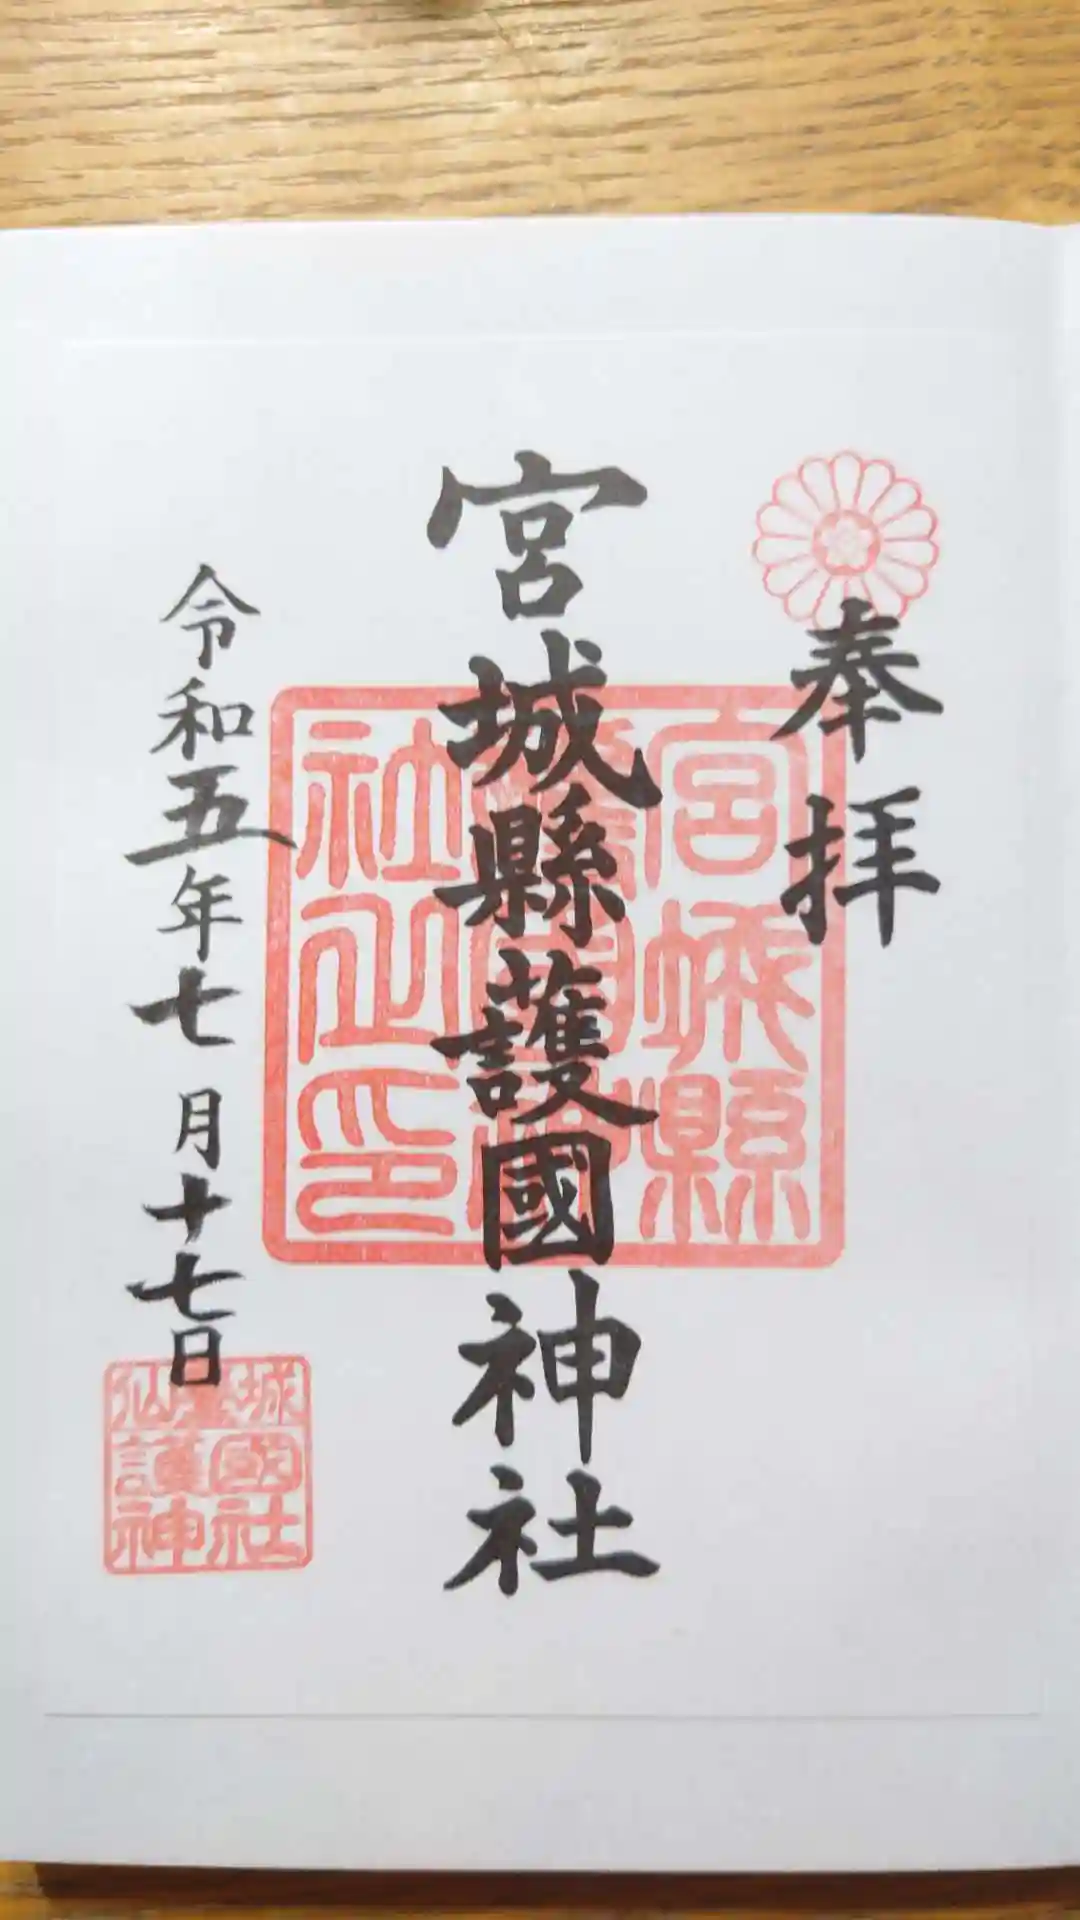 奉拝
宮城縣護國神社
宮城縣
護國神
社之印
令和五年七月十七日
仙臺城
護國
神社